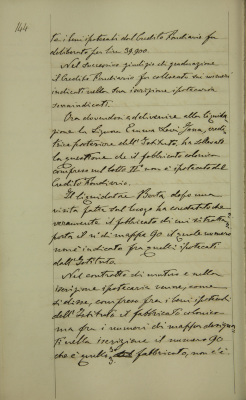 144
ta i beni ipotecati del Credito Fondiario fu
deliberato per lire 39.900.
Nel successivo giudizio di graduazione
il Credito Fondiario fu collocato sui numeri
indicati nella sua iscrizione ipotecaria
summindicati.
Ora dovendosi addivenire alla liquida
zione la Signora Emma Levi Jana, credi
trice posteriore dell'Istituto, ha sollevato
la questione che il fabbricato colonico
compreso nel lotto II° non è ipotecato del
Credito Fondiario.
Il liquidatore Borta dopo una
visita fatta sul luogo ha constatato che
veramente il fabbricato di cui si tratta
porta il n° di mappa 90 il quale numero
non è indicato fra quelli ipotecati
dall'Istituto.
Nel contratto di mutuo e nella
iscrizione ipotecaria venne, come
si disse, compreso fra i beni ipotecati
dell'Istituto il fabbricato colonico
ma fra i numeri di mappa
nella iscrizione il numero 90
che è quello fabbricato, non è